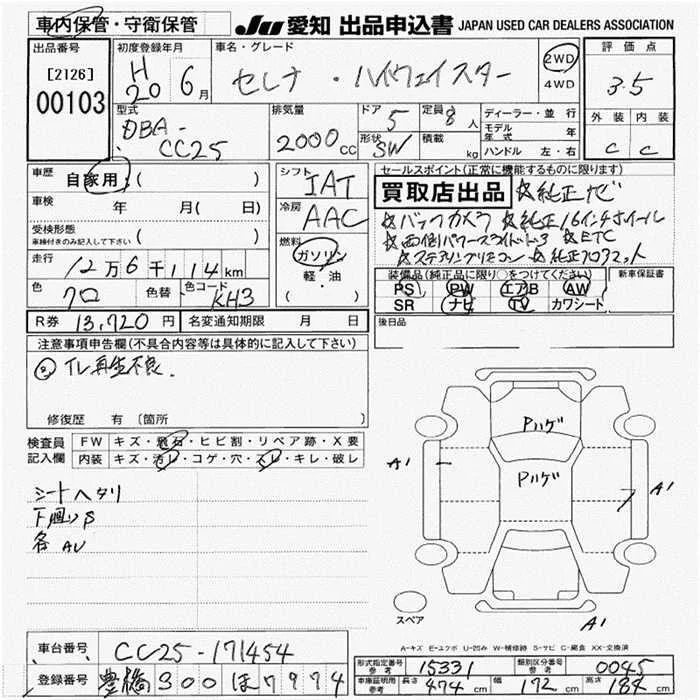 車内保管・守衛保管 JU 愛知 出品申込書 JAPAN USED CAR DEALERS ASSOCIATION
出品番号 初度登録年月 車名・グレード 評価点
[2126] H20 6月 セレナ・ハイウェイスター 2WD 4WD 3.5
00103
型式 排気量 ドア 5 定員 8人 ディーラー・並行 外装 内装
DBA-CC25 2000cc 形状 SW 積載 kg モデル年式 年 C C
ハンドル 左・右
車歴 自家用・( ) シフト IAT セールスポイント(正常に機能するものに限ります)
買取店出品 ☆純正ナビ
車検 年 月(日) 冷房 AAC ☆バックカメラ ☆純正16インチホイール
受検形態 車検付きのみ記入して下さい ( ) 燃料 ガソリン・軽・油 ☆両側パワースライドドア ☆ETC
☆ステアリングリモコン ☆純正フロアマット
走行 12万6千114km
装備品(純正品に限り○をつけてください) 新車保証書
色 クロ 色替 色コード KH3 PS PW エアB AW
SR ナビ TV カワシート
R券 13,720円 名変通知期限 月 日 後日品
注意事項申告欄(不具合内容等は具体的に記入して下さい)
TV再生不良.
修復歴 有 〔箇所
検査員記入欄 FW キズ・飛石・ヒビ割・リペア跡・X要
内装 キズ・汚レ・コゲ・穴・スレ・キレ・破レ
Pハゲ
Pハゲ
A1 A1
シートヘタリ
下回りS
各AU
スペア A1
A-キズ E-エクボ U-凹み W-補修跡 S-サビ C-腐食 XX-交換済
車台番号 CC25-171454
登録番号 豊橋300ほ7974
形式指定番号 参考 15331 類別区分番号 参考 0045
車庫証明用 参考 長さ 474cm 幅 172cm 高さ 184cm